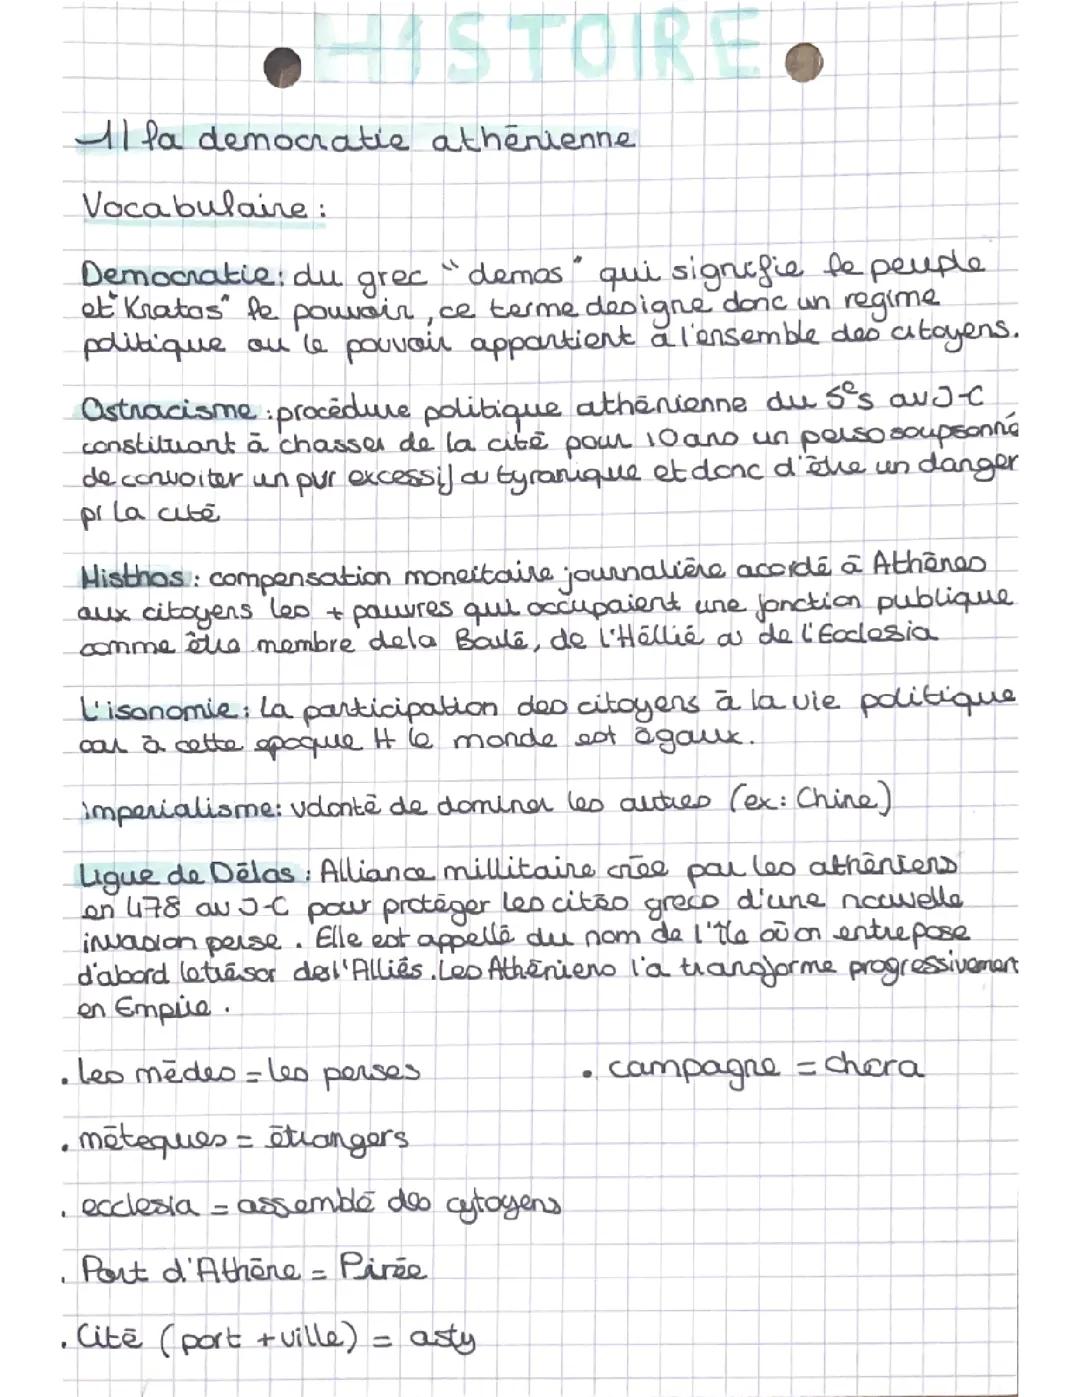 HISTOIRE
1) la democratie athēnienne
Vocabulaire :
Democratie : du grec "demos" qui signifie le peuple
et "Kratos" le pouvoir, ce terme designe donc un regime
politique ou le pouvoir appartient à l'ensemble des citoyens.
Ostracisme : procēdure politique athēnienne du 5e s av J-C
constituant ā chasser de la citē pour 10 ans un perso soupsonné
de convoiter un pvr excessif ou tyranique et donc d'être un danger
pr la citē
Misthos : compensation moneitaire journalière acordē ā Athēnes
aux citoyens les + pauvres qui occupaient une fonction publique
comme être membre de la Boulē, de l'Hēllié ou de l'Ecclesia
L'isonomie : la participation des citoyens ā la vie politique
car à cette epoque tt le monde est ēgaux.
imperialisme : volontē de dominer les autres (ex : Chine)
Ligue de Dēlos : Alliance millitaire crēe par les athēniens
en 478 av J-C pour protēger les citēs grecs d'une nouvelle
invasion perse. Elle est appellē du nom de l'île où on entrepose
d'abord le trēsor des l'Alliēs. Les Athēniens l'a transforme progressivement
en Empire.
. les mēdes = les perses
. campagne = chora
. mēteques = ētrangers
. ecclesia = assemblé des cytoyens
. Port d'Athēne = Pirēe
. Citē (port + ville) = asty